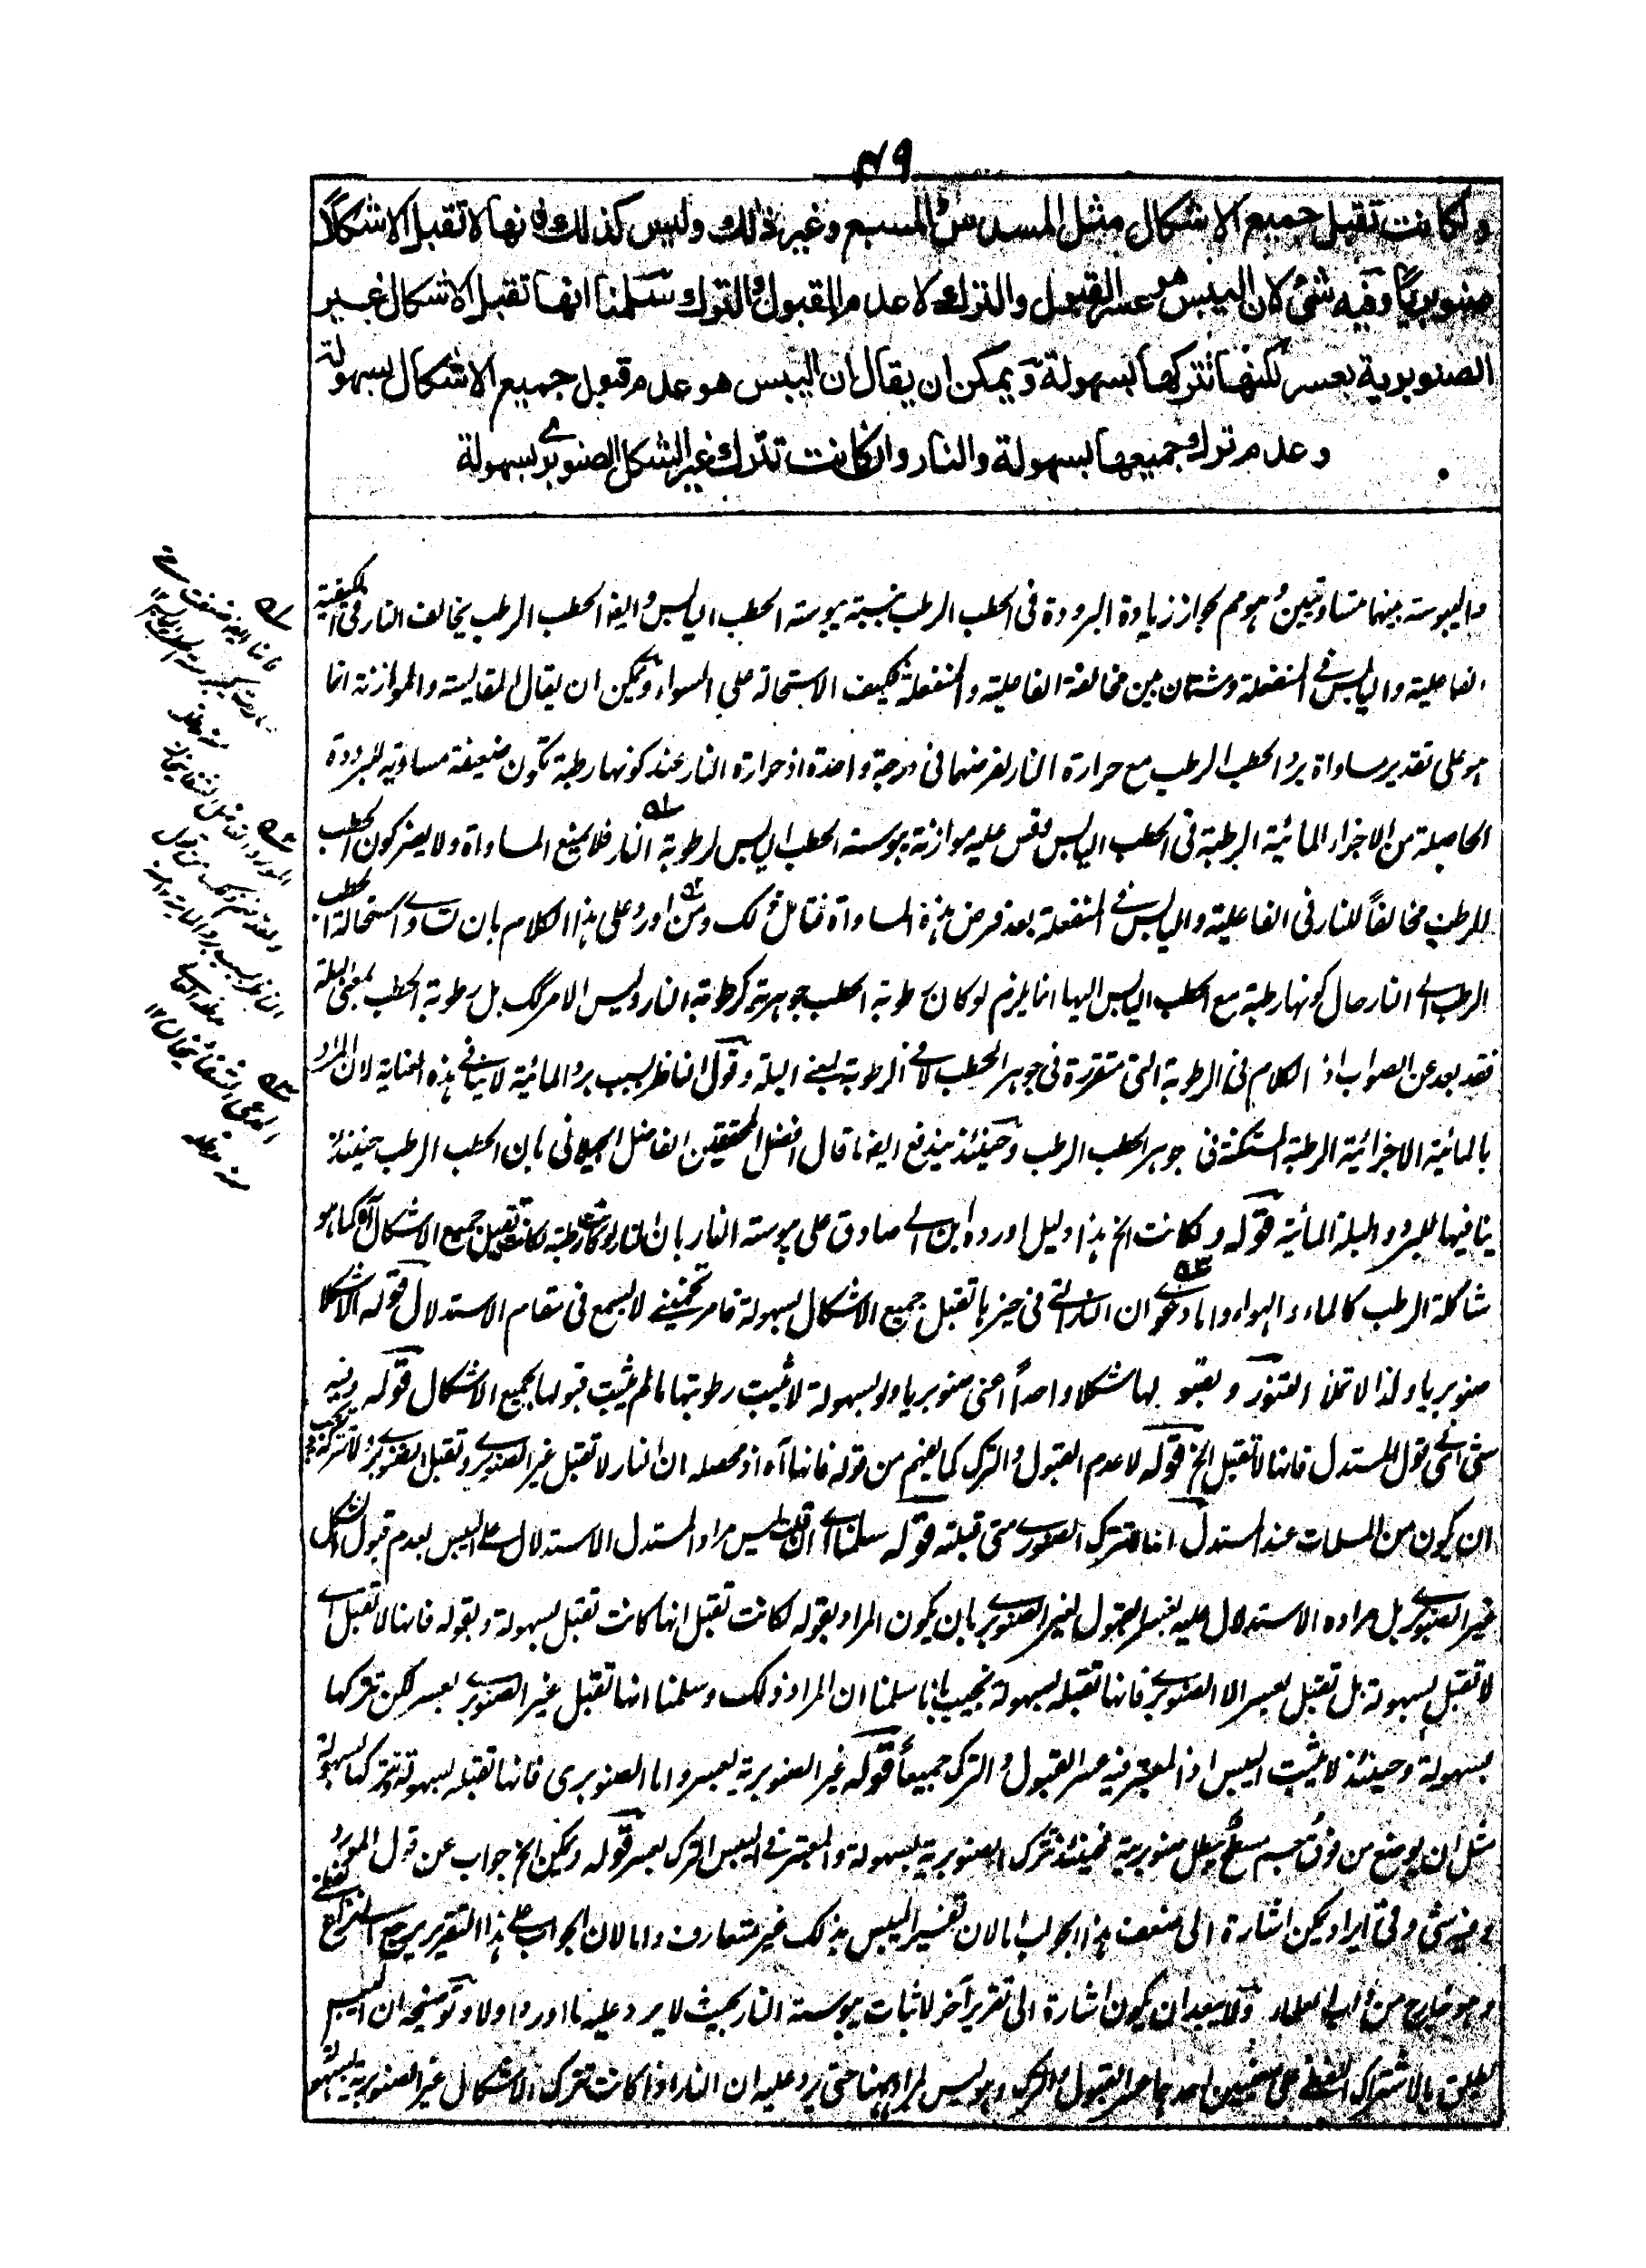 ٤٩
ولكانت تقبل جميع الاشكال مثل المسدس والمسبع وغير ذلك وليس كذلك فانها لا تقبل الاشكلا
صنوبريا وفيه شئ لان اليبس هو عسر القبول والترك لا عدم القبول والترك سلمنا انها تقبل الاشكال غير
الصنوبرية بعسر لكنها تتركها بسهولة ويمكن ان يقال ان اليبس هو عدم قبول جميع الاشكال بسهولة
وعدم ترك جميعها بسهولة والنار وانكانت تترك غير الشكل الصنوبري بسهولة
واليبوسة بينهما متساويتين وهو مم لجواز زيادة البرودة فى الحطب الرطب بنسبة يبوسة الحطب اليابس وايضا الحطب الرطب يخالف النار فى الكيفية
الفاعلية واليابس فى المنفعلة وشتان بين مخالفة الفاعلية والمنفعلة فكيف الاستحالة على السواء ويمكن ان يقال المقايسة والموازنة انما
هو على تقدير مساواة برد الحطب الرطب مع حرارة النار لفرضهما فى درجة واحدة اذ حرارة النار عند كونها رطبة تكون ضعيفة مساوية للبرودة
الحاصلة من الاجزاء المائية الرطبة فى الحطب اليابس وقس عليه موازنة يبوسة الحطب اليابس لرطوبة النار فلا يمنع المساواة ولا يضر كون الحطب
الرطب مخالفاً للنار فى الفاعلية واليابس فى المنفعلة بعد فرض هذه المساواة فتامل فى ذلك ومن اورد على هذا الكلام بان تساوى استحالة الحطب
الرطب الى النار حال كونها رطبة مع الحطب اليابس اليها انما يلزم لو كان رطوبة الحطب جوهرية كرطوبة النار وليس الامر كك بل رطوبة الحطب بمعنى البلة
فقد بعد عن الصواب اذ الكلام فى الرطوبة التى متقررة فى جوهر الحطب لا فى الرطوبة بمعنى البلة وقول الناظر بسبب برد المائية لا ينافى هذه العناية لان المراد
بالمائية الاجزائية الرطبة المستكنة فى جوهر الحطب الرطب وحينئذ يندفع ايضا ما قال افضل المحققين الفاضل الجيلانى بان الحطب الرطب حينئذ
ينافيها للبرد والبلة المائية قوله ولكانت الخ هذا دليل اورده ابن ابى صادق على يبوسة النار بان النار لو كانت رطبة لكانت تقبل جميع الاشكال كما هو
شاكلة الرطب كالماء والهواء واما دعوى ان النار التى فى حيزها تقبل جميع الاشكال بسهولة فامر تخمينى لا يسمع فى مقام الاستدلال قوله الاشكلا
صنوبريا ولذا لا تملأ التنور وبقبولها شكلا واحداً اعنى صنوبريا ولو بسهولة لا يثبت رطوبتها ما لم يثبت قبولها لجميع الاشكال قوله وفيه
شئ اى فى قول المستدل فانها لا تقبل الخ قوله لا عدم القبول والترك كما يفهم من قوله فانها آه اذ محصله ان النار لا تقبل غير الصنوبرى وتقبل الصنوبرى ولا تتركه
ان يكون من المسلمات عند المستدل انها لا تترك الصنوبرى متى قبلته قوله سلمنا اى ان قلت ليس مراد المستدل الاستدلال على اليبس بعدم قبول الشكل
غير الصنوبرى بل مراده الاستدلال عليه بعسر القبول لغير الصنوبرى بان يكون المراد بقوله لكانت تقبل انها كانت تقبل بسهولة وبقوله فانها لا تقبل اى
لا تقبل بسهولة بل تقبل بعسر الا الصنوبرى فانها تقبله بسهولة نجيب بانا سلمنا ان المراد ذلك وسلمنا انها تقبل غير الصنوبرى بعسر لكن تتركها
بسهولة وحينئذ لا يثبت اليبس اذ المعتبر فيه عسر القبول والترك جميعاً قوله غير الصنوبرية بعسر واما الصنوبرى فانها تقبله بسهولة وتتركها بسهولة
مثل ان يوضع من فوق جسم مسطح يبطل صنوبرية فحينئذ تترك الصنوبرية بسهولة والمعتبر فى اليبس الترك بعسر قوله ويمكن الخ جواب عن قول المورد
وفيه شئ وفى ايراد يمكن اشارة الى ضعف هذا الجواب اما لان تفسير اليبس بذلك غير متعارف واما لان الجواب على هذا التقرير يرجع الى النزاع لفظى
وهو خارج من داب العلماء ولا يبعد ان يكون اشارة الى تقرير آخر لاثبات يبوسة النار بحيث لا يرد عليه ما اورد اولا وتوضيحه ان اليبس
يطلق بالاشتراك اللفظى على معنيين احدهما عسر القبول والترك وهو ليس المراد ههنا حتى يرد عليه ان النار اذا كانت تترك الاشكال غير الصنوبرية بسهولة